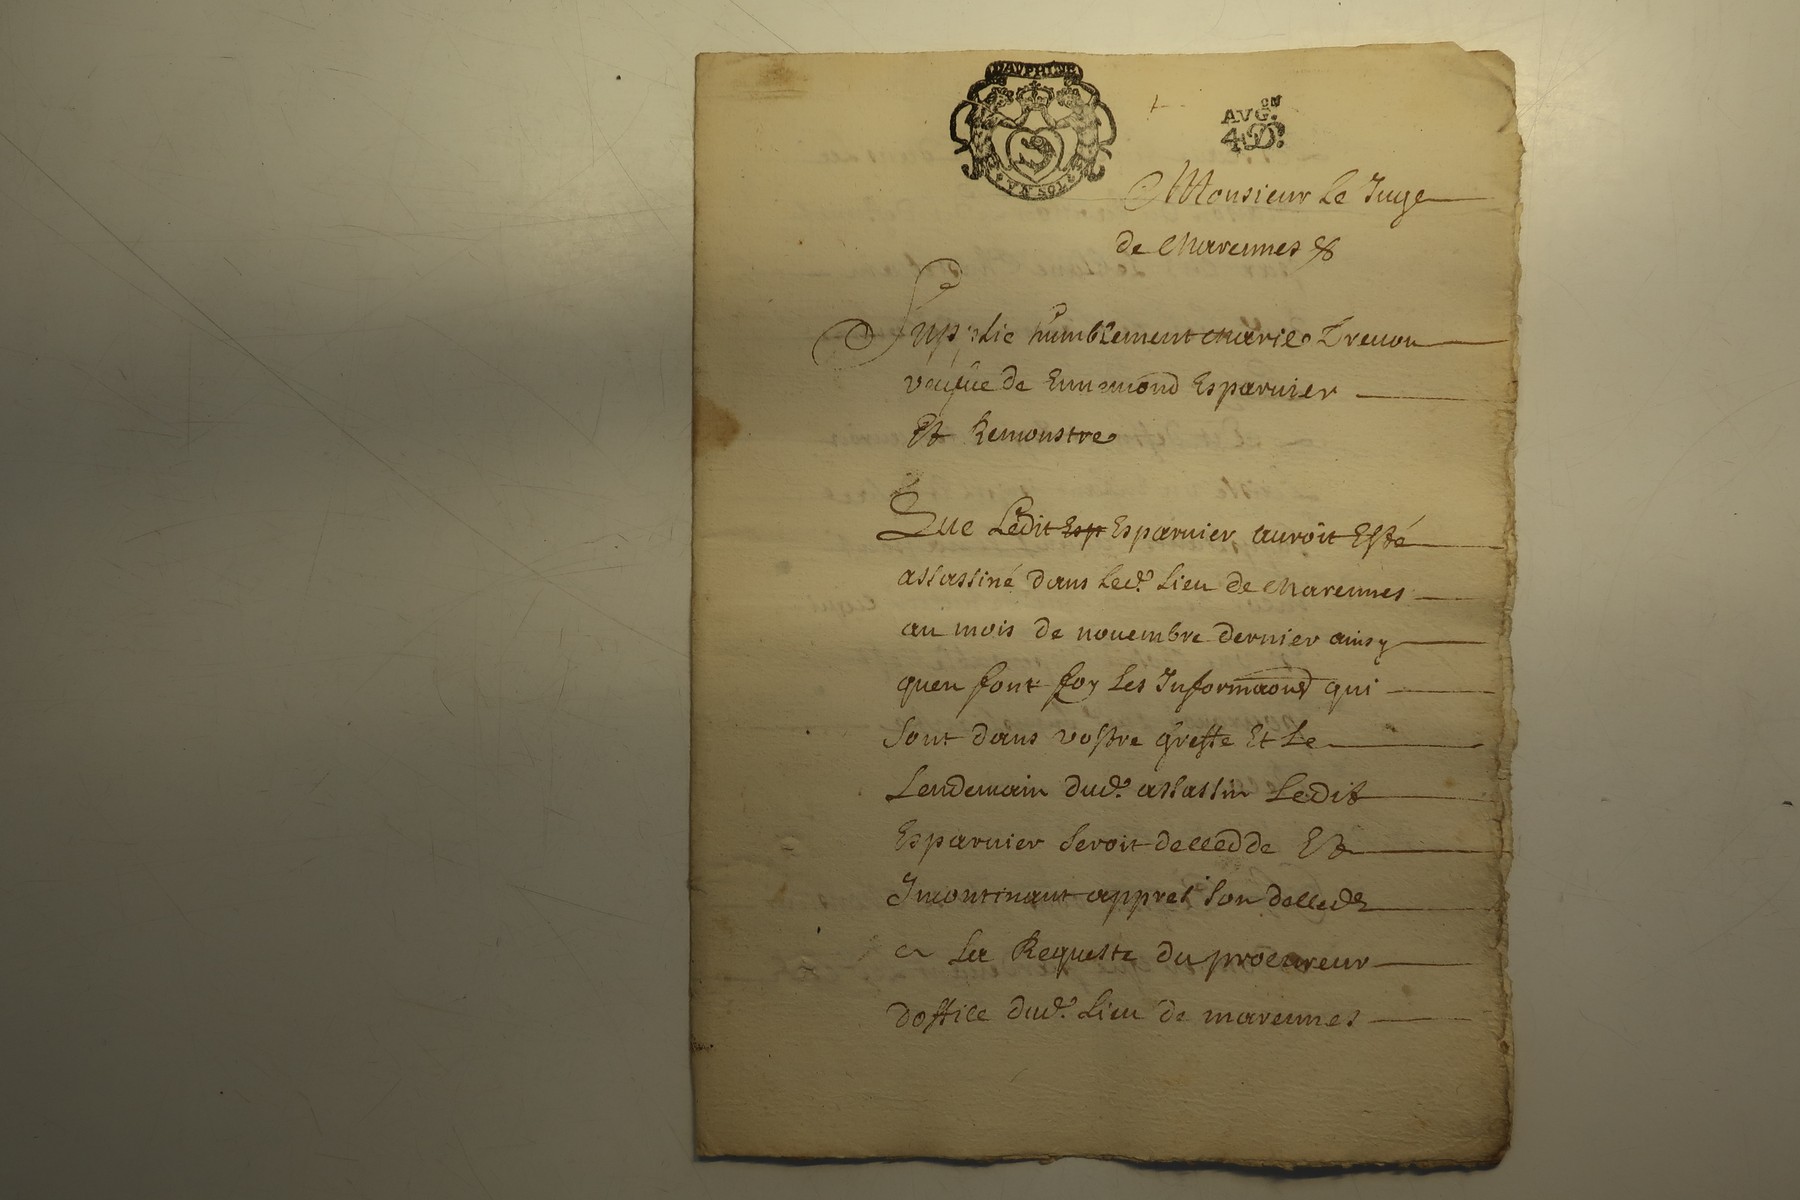 DAUPHINE
UN SOL
AVG.ON
4D.
Monsieur Le Juge
de Marennes &
Supplie humblement Marie Drevon
veufue de Ennemond Esparvier
Et Remonstre
Que Ledit Esp Esparvier auroit Esté
assassiné dans Led. Lieu de Marennes
au mois de novembre dernier ainsy
quen font foy Les Informaons qui
sont dans vostre greffe Et Le
Lendemain dud. assassin Ledit
Esparvier seroit decedde Et
Incontinant appres son decedz
a La Requeste du procureur
doffice dud. Lieu de marennes